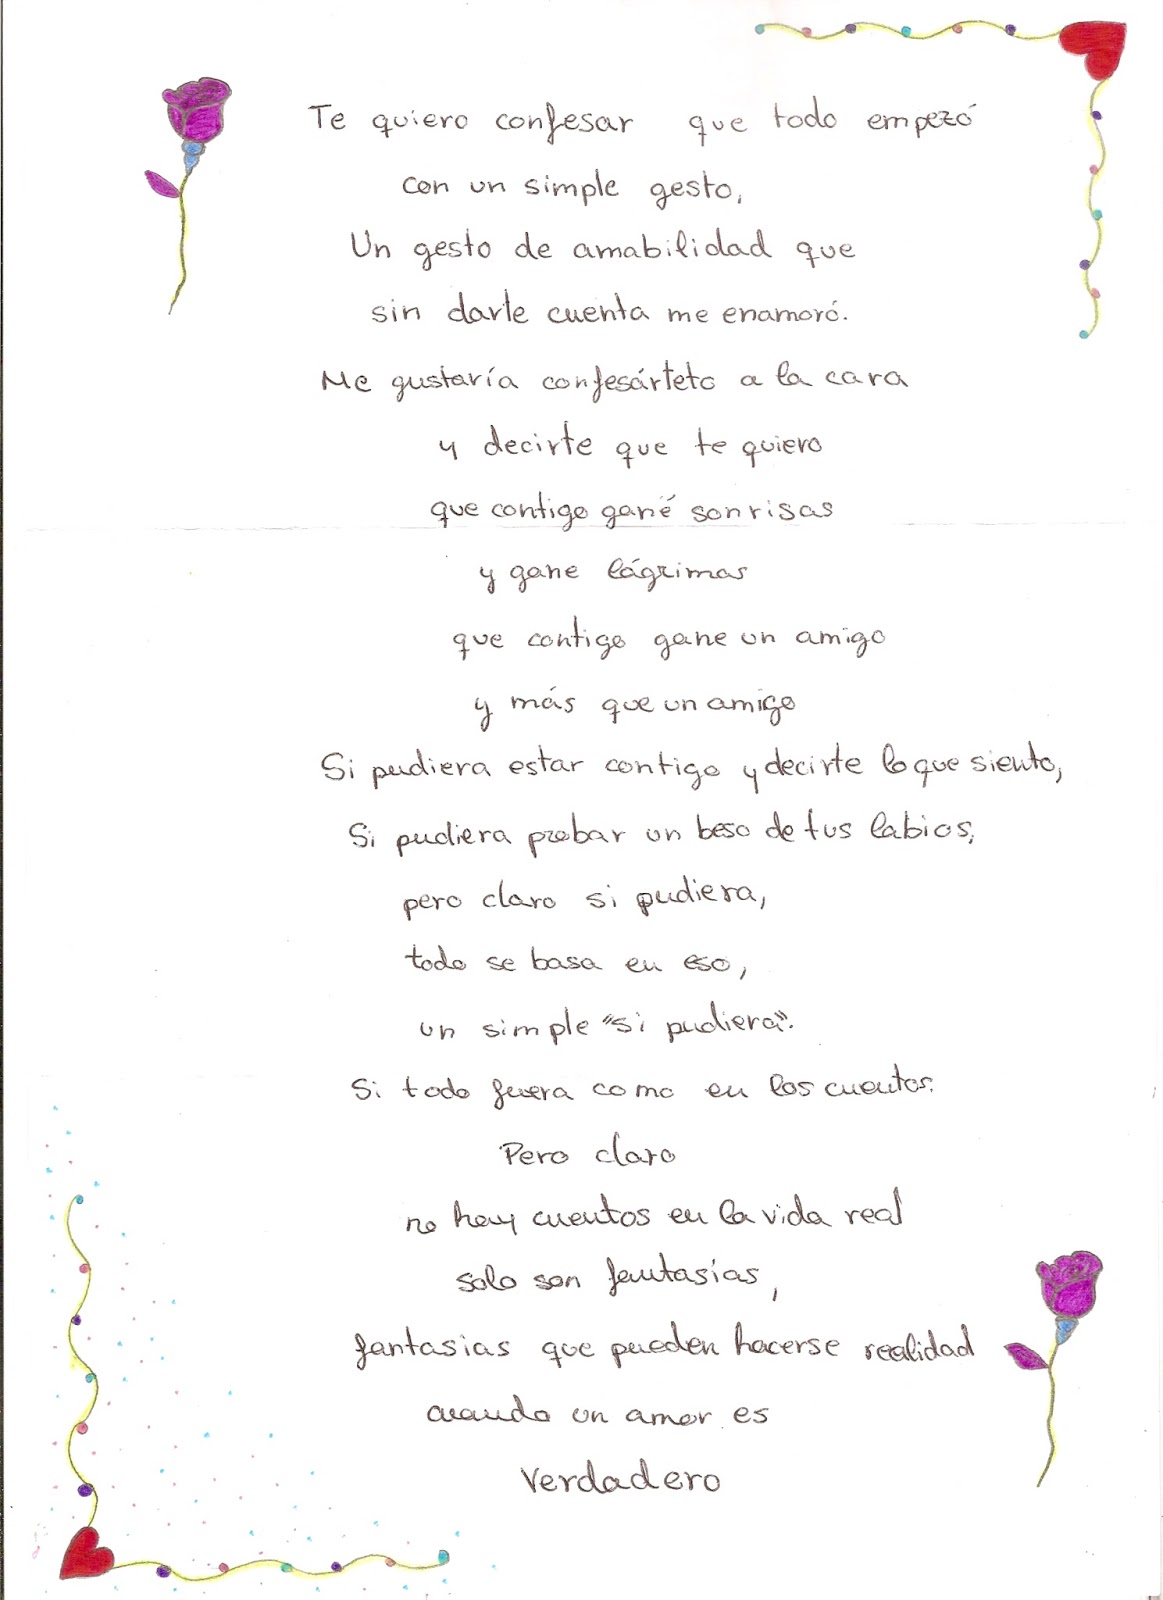 Te quiero confesar que todo empezó
con un simple gesto,
Un gesto de amabilidad que
sin darle cuenta me enamoró.
Me gustaría confesárteto a la cara
y decirte que te quiero
que contigo gané sonrisas
y gane lágrimas
que contigo gane un amigo
y más que un amigo
Si pudiera estar contigo y decirte lo que siento,
Si pudiera probar un beso de tus labios,
pero claro si pudiera,
todo se basa en eso,
un simple "si pudiera".
Si todo fuera como en los cuentos.
Pero claro
no hay cuentos en la vida real
solo son fantasías,
fantasias que pueden hacerse realidad
cuando un amor es
Verdadero